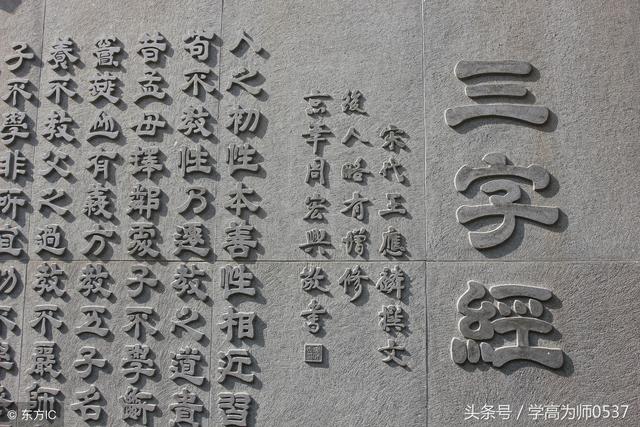 三字經
宋代王應麟撰文
後人略有增修
年周宏興敬書
人之初性本善性相近習
苟不教性乃遷教之道貴
昔孟母擇鄰處子不學斷
竇燕山有義方教五子名
養不教父之過教不嚴師
子不學非所宜幼不學
© 东方IC
头条号 / 学高为师0537